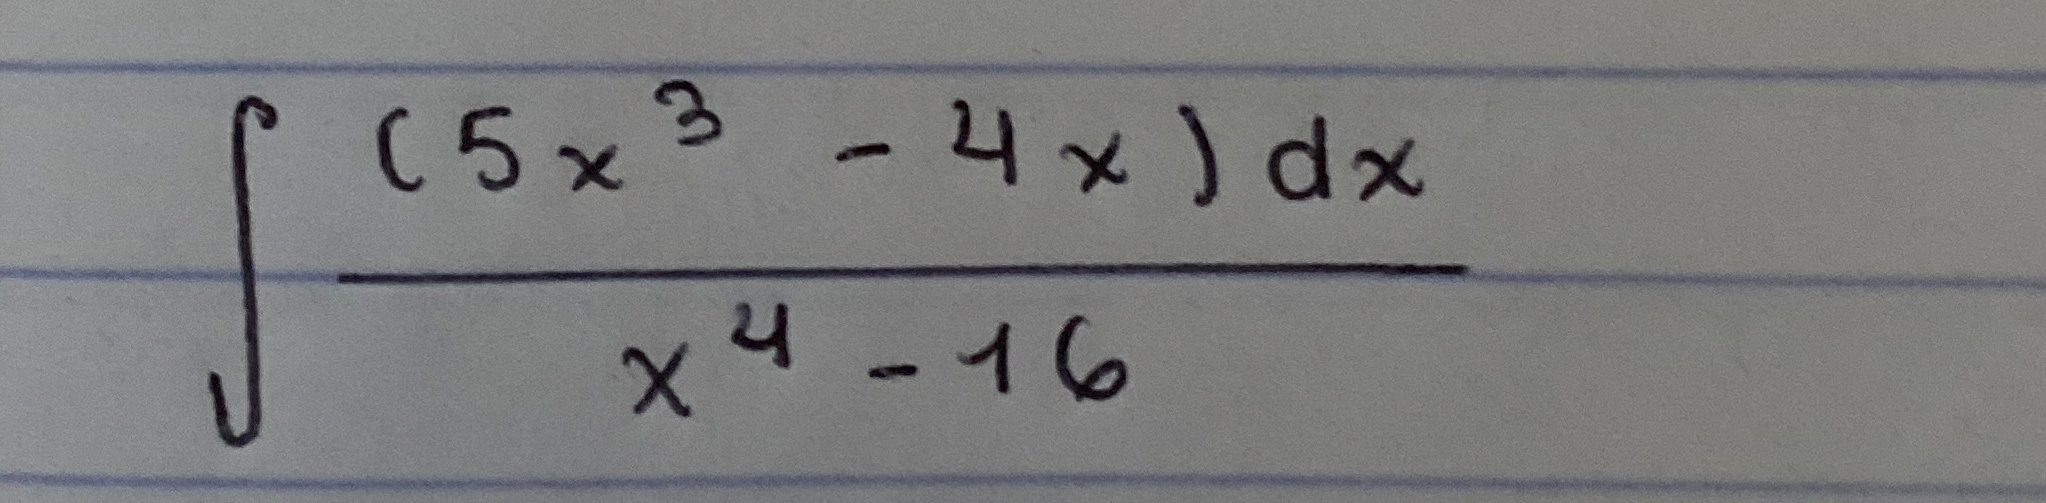 ∫ (5x³ - 4x) dx
x⁴ - 16